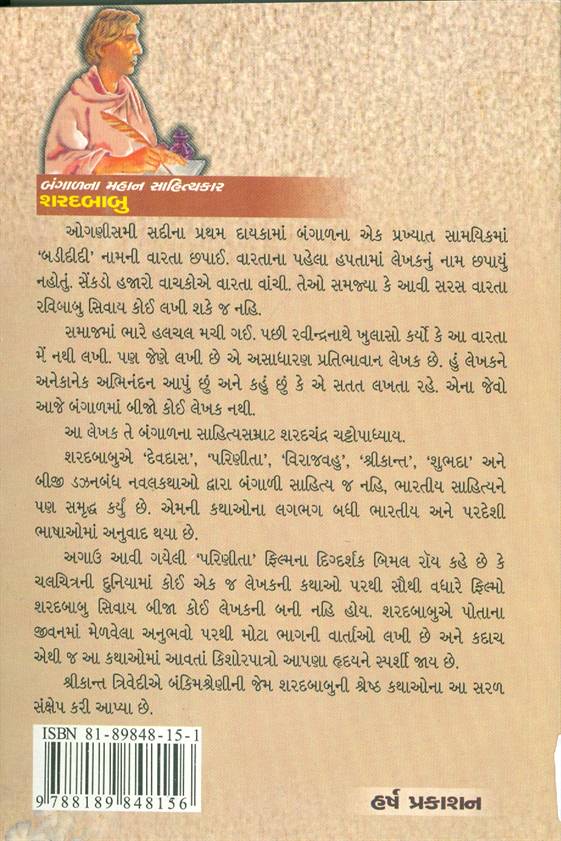 બંગાળના મહાન સાહિત્યકાર
શરદબાબુ
ઓગણીસમી સદીના પ્રથમ દાયકામાં બંગાળના એક પ્રખ્યાત સામયિકમાં
‘બડીદીદી’ નામની વારતા છપાઈ. વારતાના પહેલા હપતામાં લેખકનું નામ છપાયું
નહોતું. સેંકડો હજારો વાચકોએ વારતા વાંચી. તેઓ સમજ્યા કે આવી સરસ વારતા
રવિબાબુ સિવાય કોઈ લખી શકે જ નહિ.
સમાજમાં ભારે હલચલ મચી ગઈ. પછી રવીન્દ્રનાથે ખુલાસો કર્યો કે આ વારતા
મેં નથી લખી. પણ જેણે લખી છે એ અસાધારણ પ્રતિભાવાન લેખક છે. હું લેખકને
અનેકાનેક અભિનંદન આપું છું અને કહું છું કે એ સતત લખતા રહે. એના જેવો
આજે બંગાળમાં બીજો કોઈ લેખક નથી.
આ લેખક તે બંગાળના સાહિત્યસમ્રાટ શરદચંદ્ર ચટ્ટોપાધ્યાય.
શરદબાબુએ ‘દેવદાસ’, ‘પરિણીતા’, ‘વિરાજવહુ’, ‘શ્રીકાન્ત’, ‘શુભદા’ અને
બીજી ડઝનબંધ નવલકથાઓ દ્વારા બંગાળી સાહિત્ય જ નહિ, ભારતીય સાહિત્યને
પણ સમૃદ્ધ કર્યું છે. એમની કથાઓના લગભગ બધી ભારતીય અને પરદેશી
ભાષાઓમાં અનુવાદ થયા છે.
અગાઉ આવી ગયેલી ‘પરિણીતા’ ફિલ્મના દિગ્દર્શક બિમલ રૉય કહે છે કે
ચલચિત્રની દુનિયામાં કોઈ એક જ લેખકની કથાઓ પરથી સૌથી વધારે ફિલ્મો
શરદબાબુ સિવાય બીજા કોઈ લેખકની બની નહિ હોય. શરદબાબુએ પોતાના
જીવનમાં મેળવેલા અનુભવો પરથી મોટા ભાગની વાર્તાઓ લખી છે અને કદાચ
એથી જ આ કથાઓમાં આવતાં કિશોરપાત્રો આપણા હૃદયને સ્પર્શી જાય છે.
શ્રીકાન્ત ત્રિવેદીએ બંકિમશ્રેણીની જેમ શરદબાબુની શ્રેષ્ઠ કથાઓના આ સરળ
સંક્ષેપ કરી આપ્યા છે.
ISBN 81-89848-15-1
9 788189 848156
હર્ષ પ્રકાશન